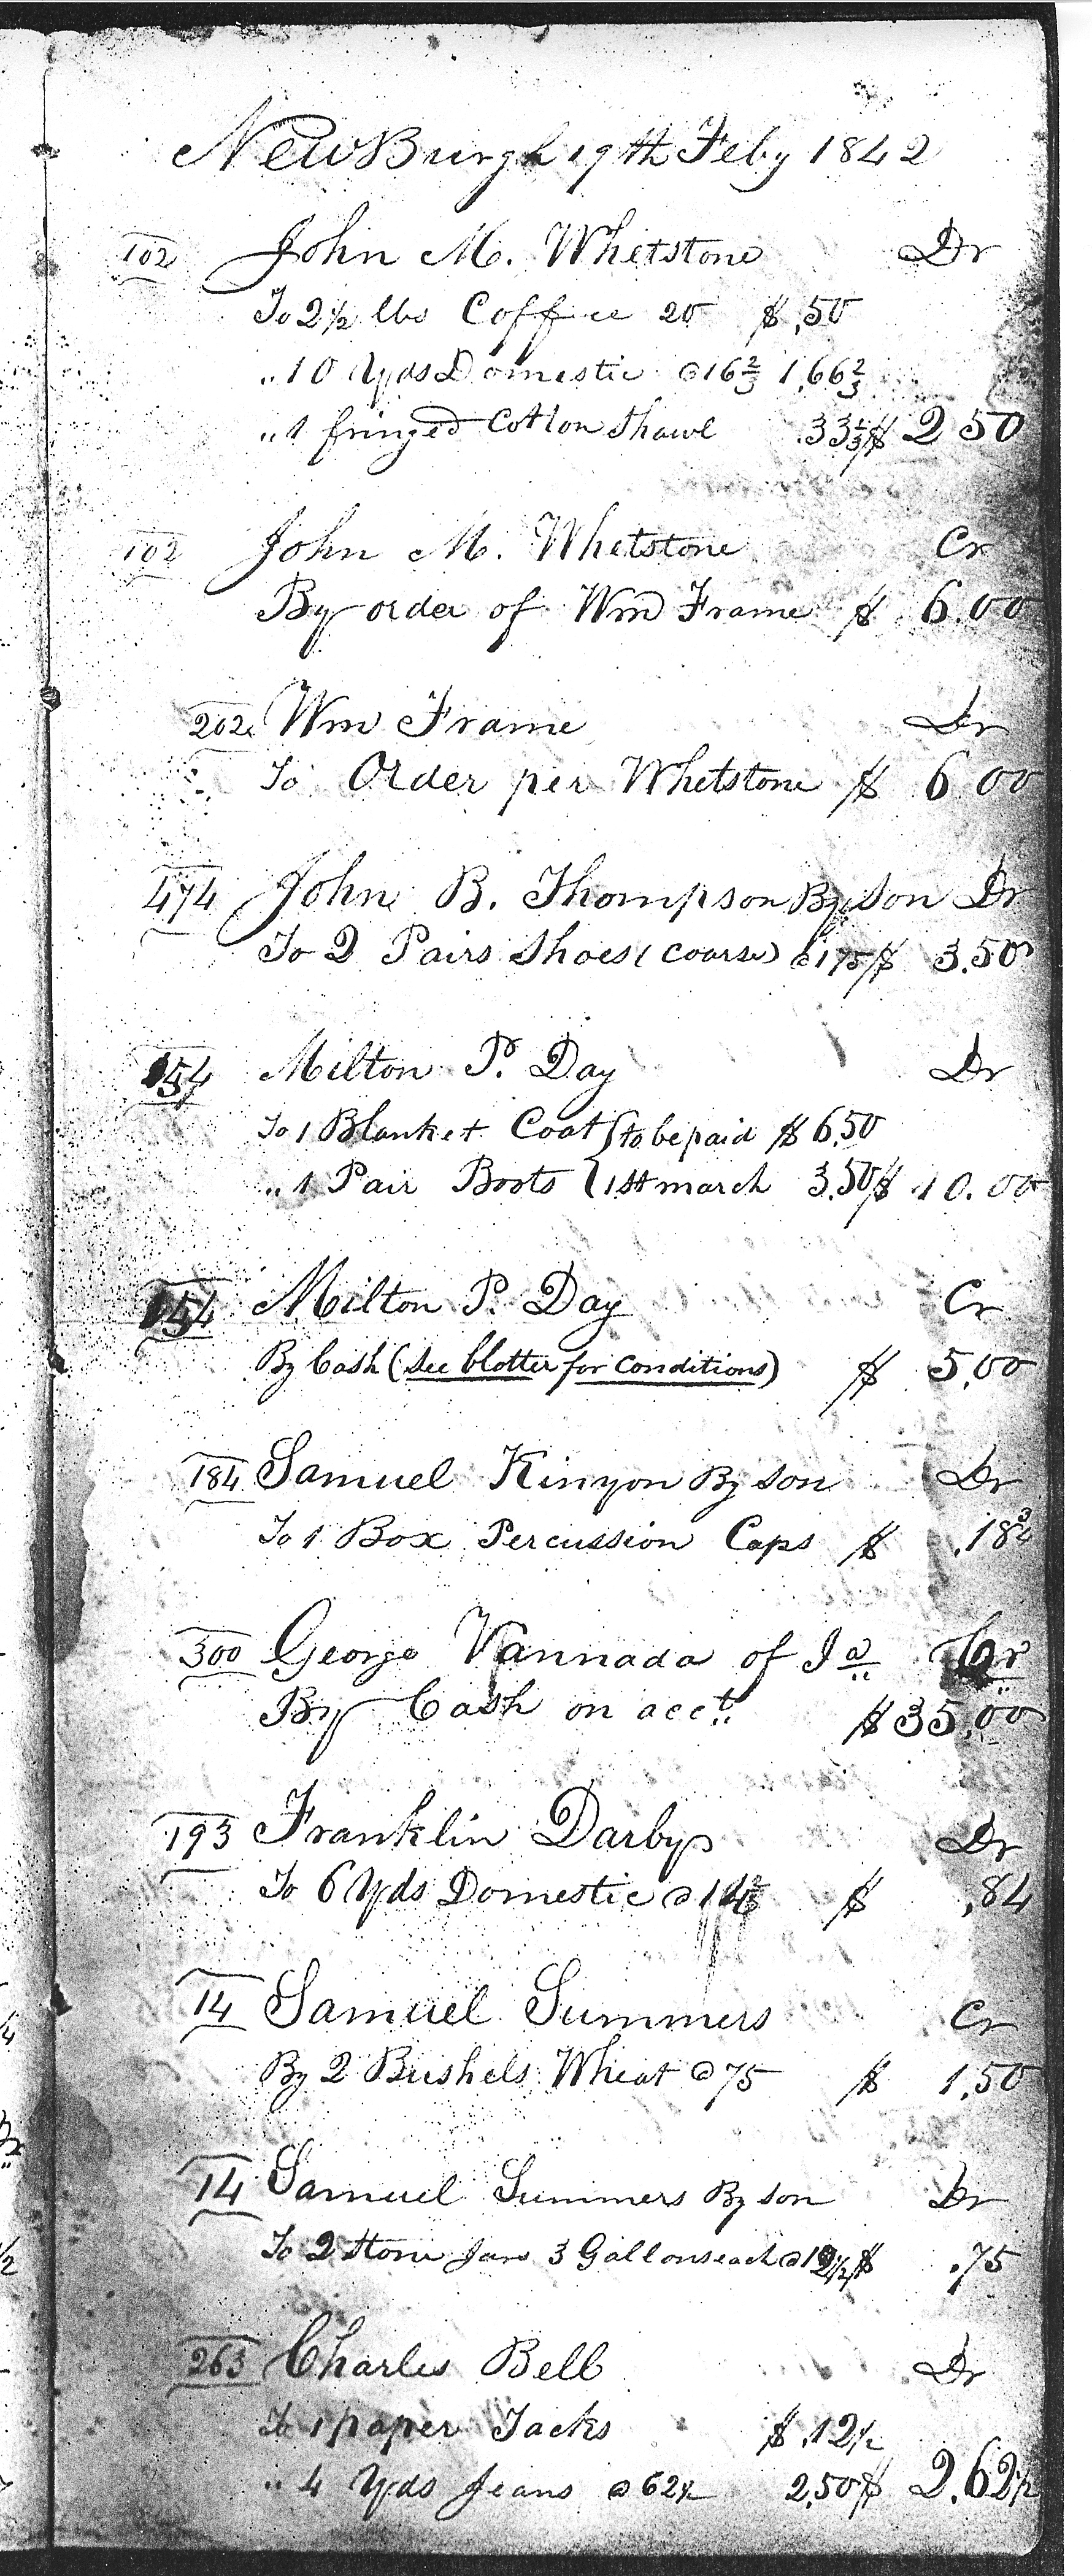 NewBurgh 19th Feby 1842
102 John M. Whetstone Dr
To 2½ lbs Coffee 20 $ ,50
" 10 Yds Domestic @ 16⅔ 1,66⅔
" 1 fringed Cotton Shawl .33⅓ $ 2 50
102 John M. Whetstone Cr
By order of Wm Frame $ 6.00
202 Wm Frame Dr
To Order per Whetstone $ 6 00
474 John B. Thompson By Son Dr
To 2 Pairs Shoes (coarse) @ 175 $ 3.50
154 Milton P. Day Dr
To 1 Blanket Coat { to be paid $ 6.50
" 1 Pair Boots { 1st march 3.50 $ 10.00
154 Milton P. Day Cr
By Cash (see blotter for conditions) $ 5,00
184 Samuel Kinyon By son Dr
To 1 Box Percussion Caps $ .18¾
300 George Vannada of Ia Cr
By Cash on acct. $ 35,00
193 Franklin Darby Dr
To 6 Yds Domestic @ 14 $ ,84
14 Samuel Summers Cr
By 2 Bushels Wheat @ 75 $ 1,50
14 Samuel Summers By son Dr
To 2 Stone Jars 3 Gallons each @ 12½ $ .75
263 Charles Bell Dr
To 1 paper Tacks $ .12½
" 4 Yds Jeans @ 62½ 2,50 $ 2.62½